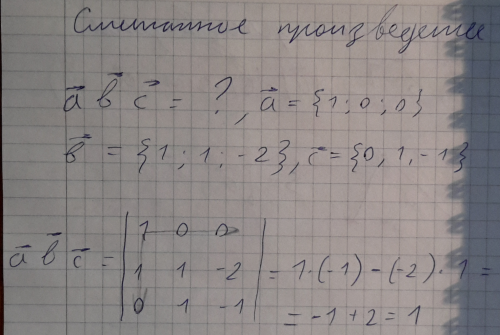 Смешанное произведение
a⃗ b⃗ c⃗ = ?, a⃗ = {1; 0; 0}
b⃗ = {1; 1; -2}, c⃗ = {0, 1, -1}
a⃗ b⃗ c⃗ = | 1 0 0 |
| 1 1 -2 | = 1·(-1) - (-2)·1 =
| 0 1 -1 |
= -1 + 2 = 1